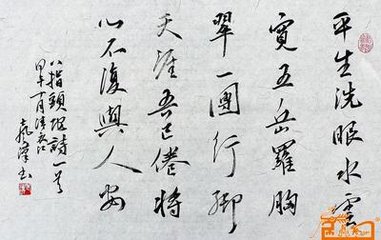 平生洗眼水雲
寬五岳羅胸
翠一團行腳
天涯吾已倦將
心不復與人安
八指頭陀詩一首
甲午丁月清泉江
書